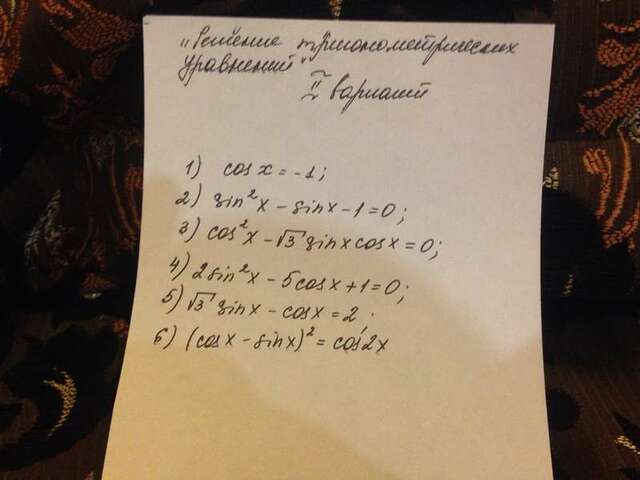 „Решение тригонометрических
уравнений"
II вариант
1) cos x = -1;
2) sin²x - sinx - 1 = 0;
3) cos²x - √3 sinx cosx = 0;
4) 2sin²x - 5cosx + 1 = 0;
5) √3 sinx - cosx = 2.
6) (cosx - sinx)² = cos2x